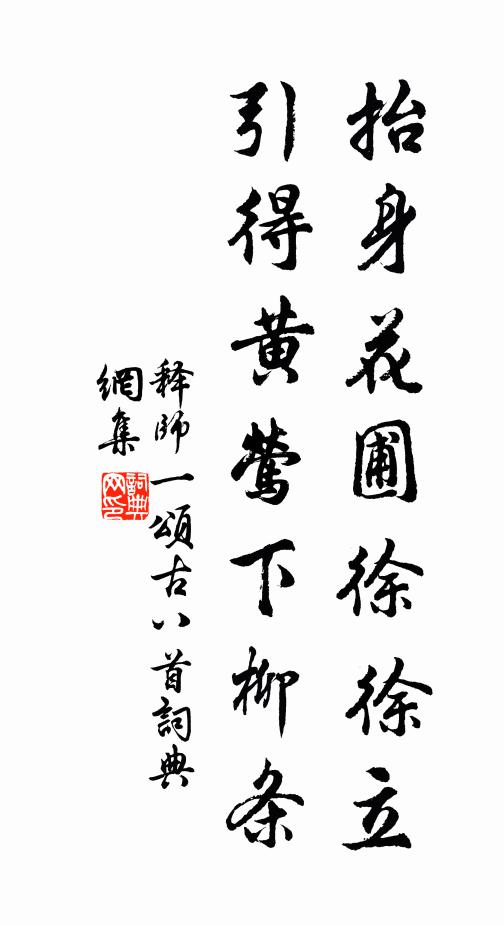 抬身花圃徐徐立
引得黄莺下柳条
释师一頌古八首詞典
網集
詞典
网印